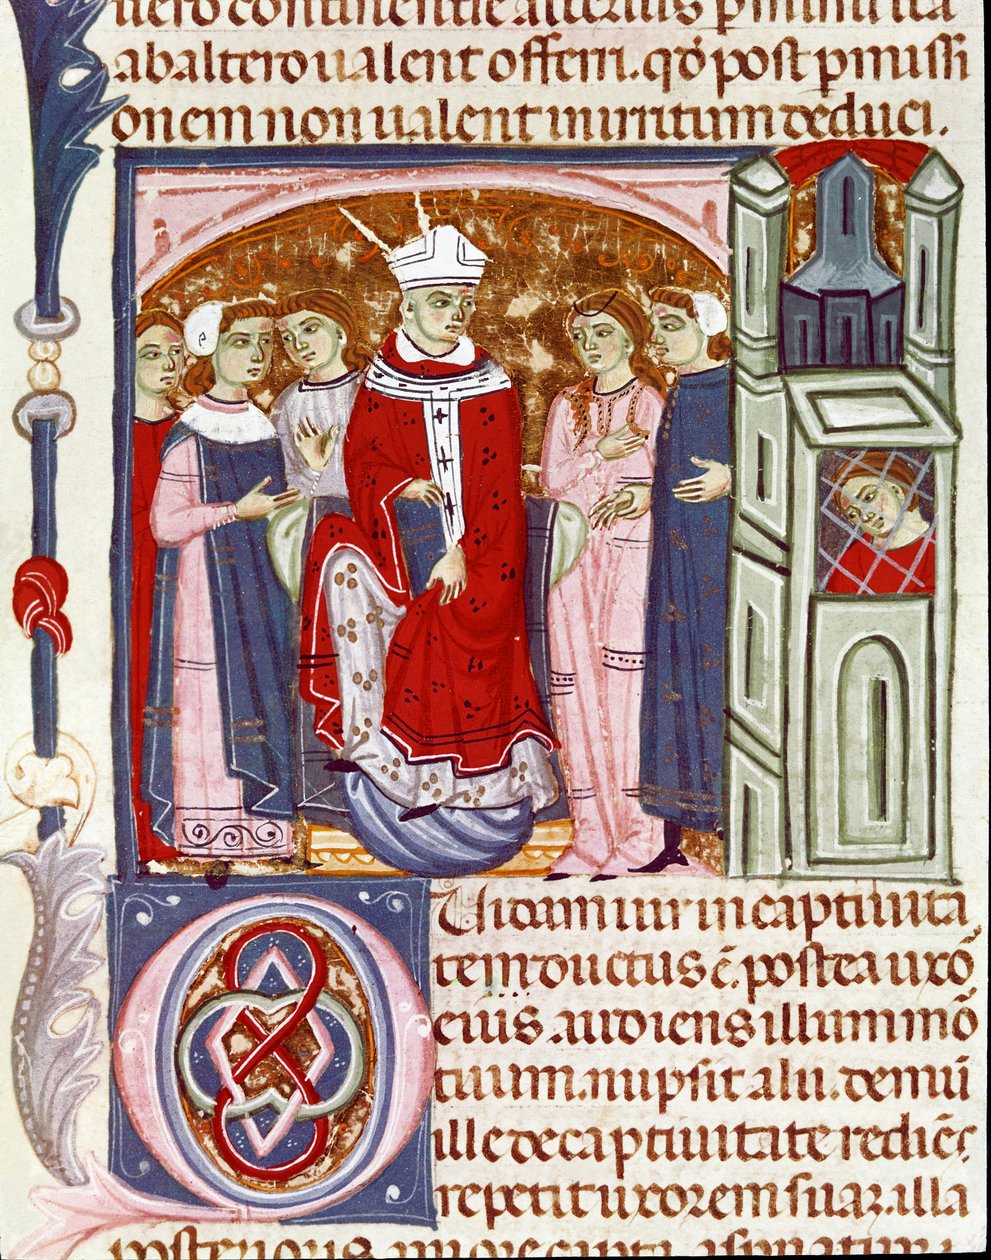 uero continentie alterius promittita
ab altero ualent offerri. qđ post pmissi
onem non ualent in irritum deduci.
Quidam uir in captiuita
tem ductus ē. postea uxō
eius. audiens illum mō
tuum. nupsit alii. demū
ille de captiuitate rediēs
repetit uxorem suaʒ. illa